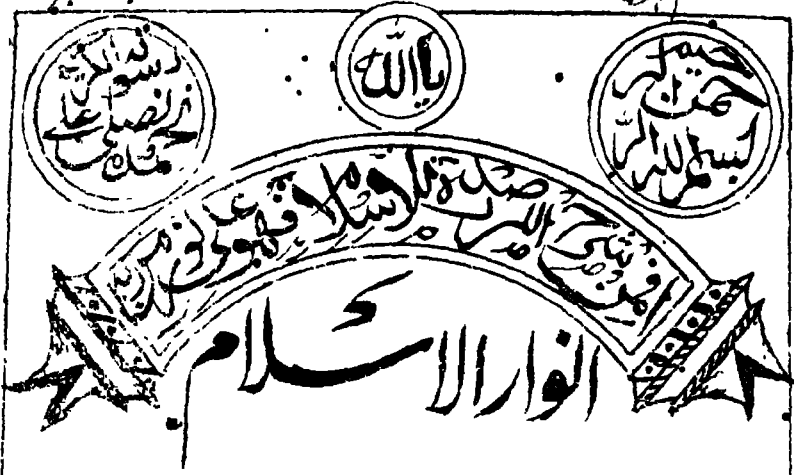 بسم الله الرحمن الرحيم
يا الله
نحمده ونصلي على رسوله الكريم
افمن شرح الله صدره للاسلام فهو على نور من ربه
انوار الاسلام